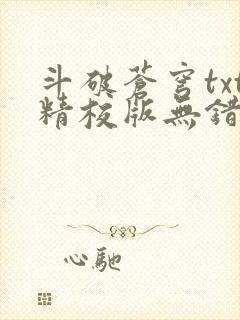 斗破蒼穹txt
精校版無錯
心馳